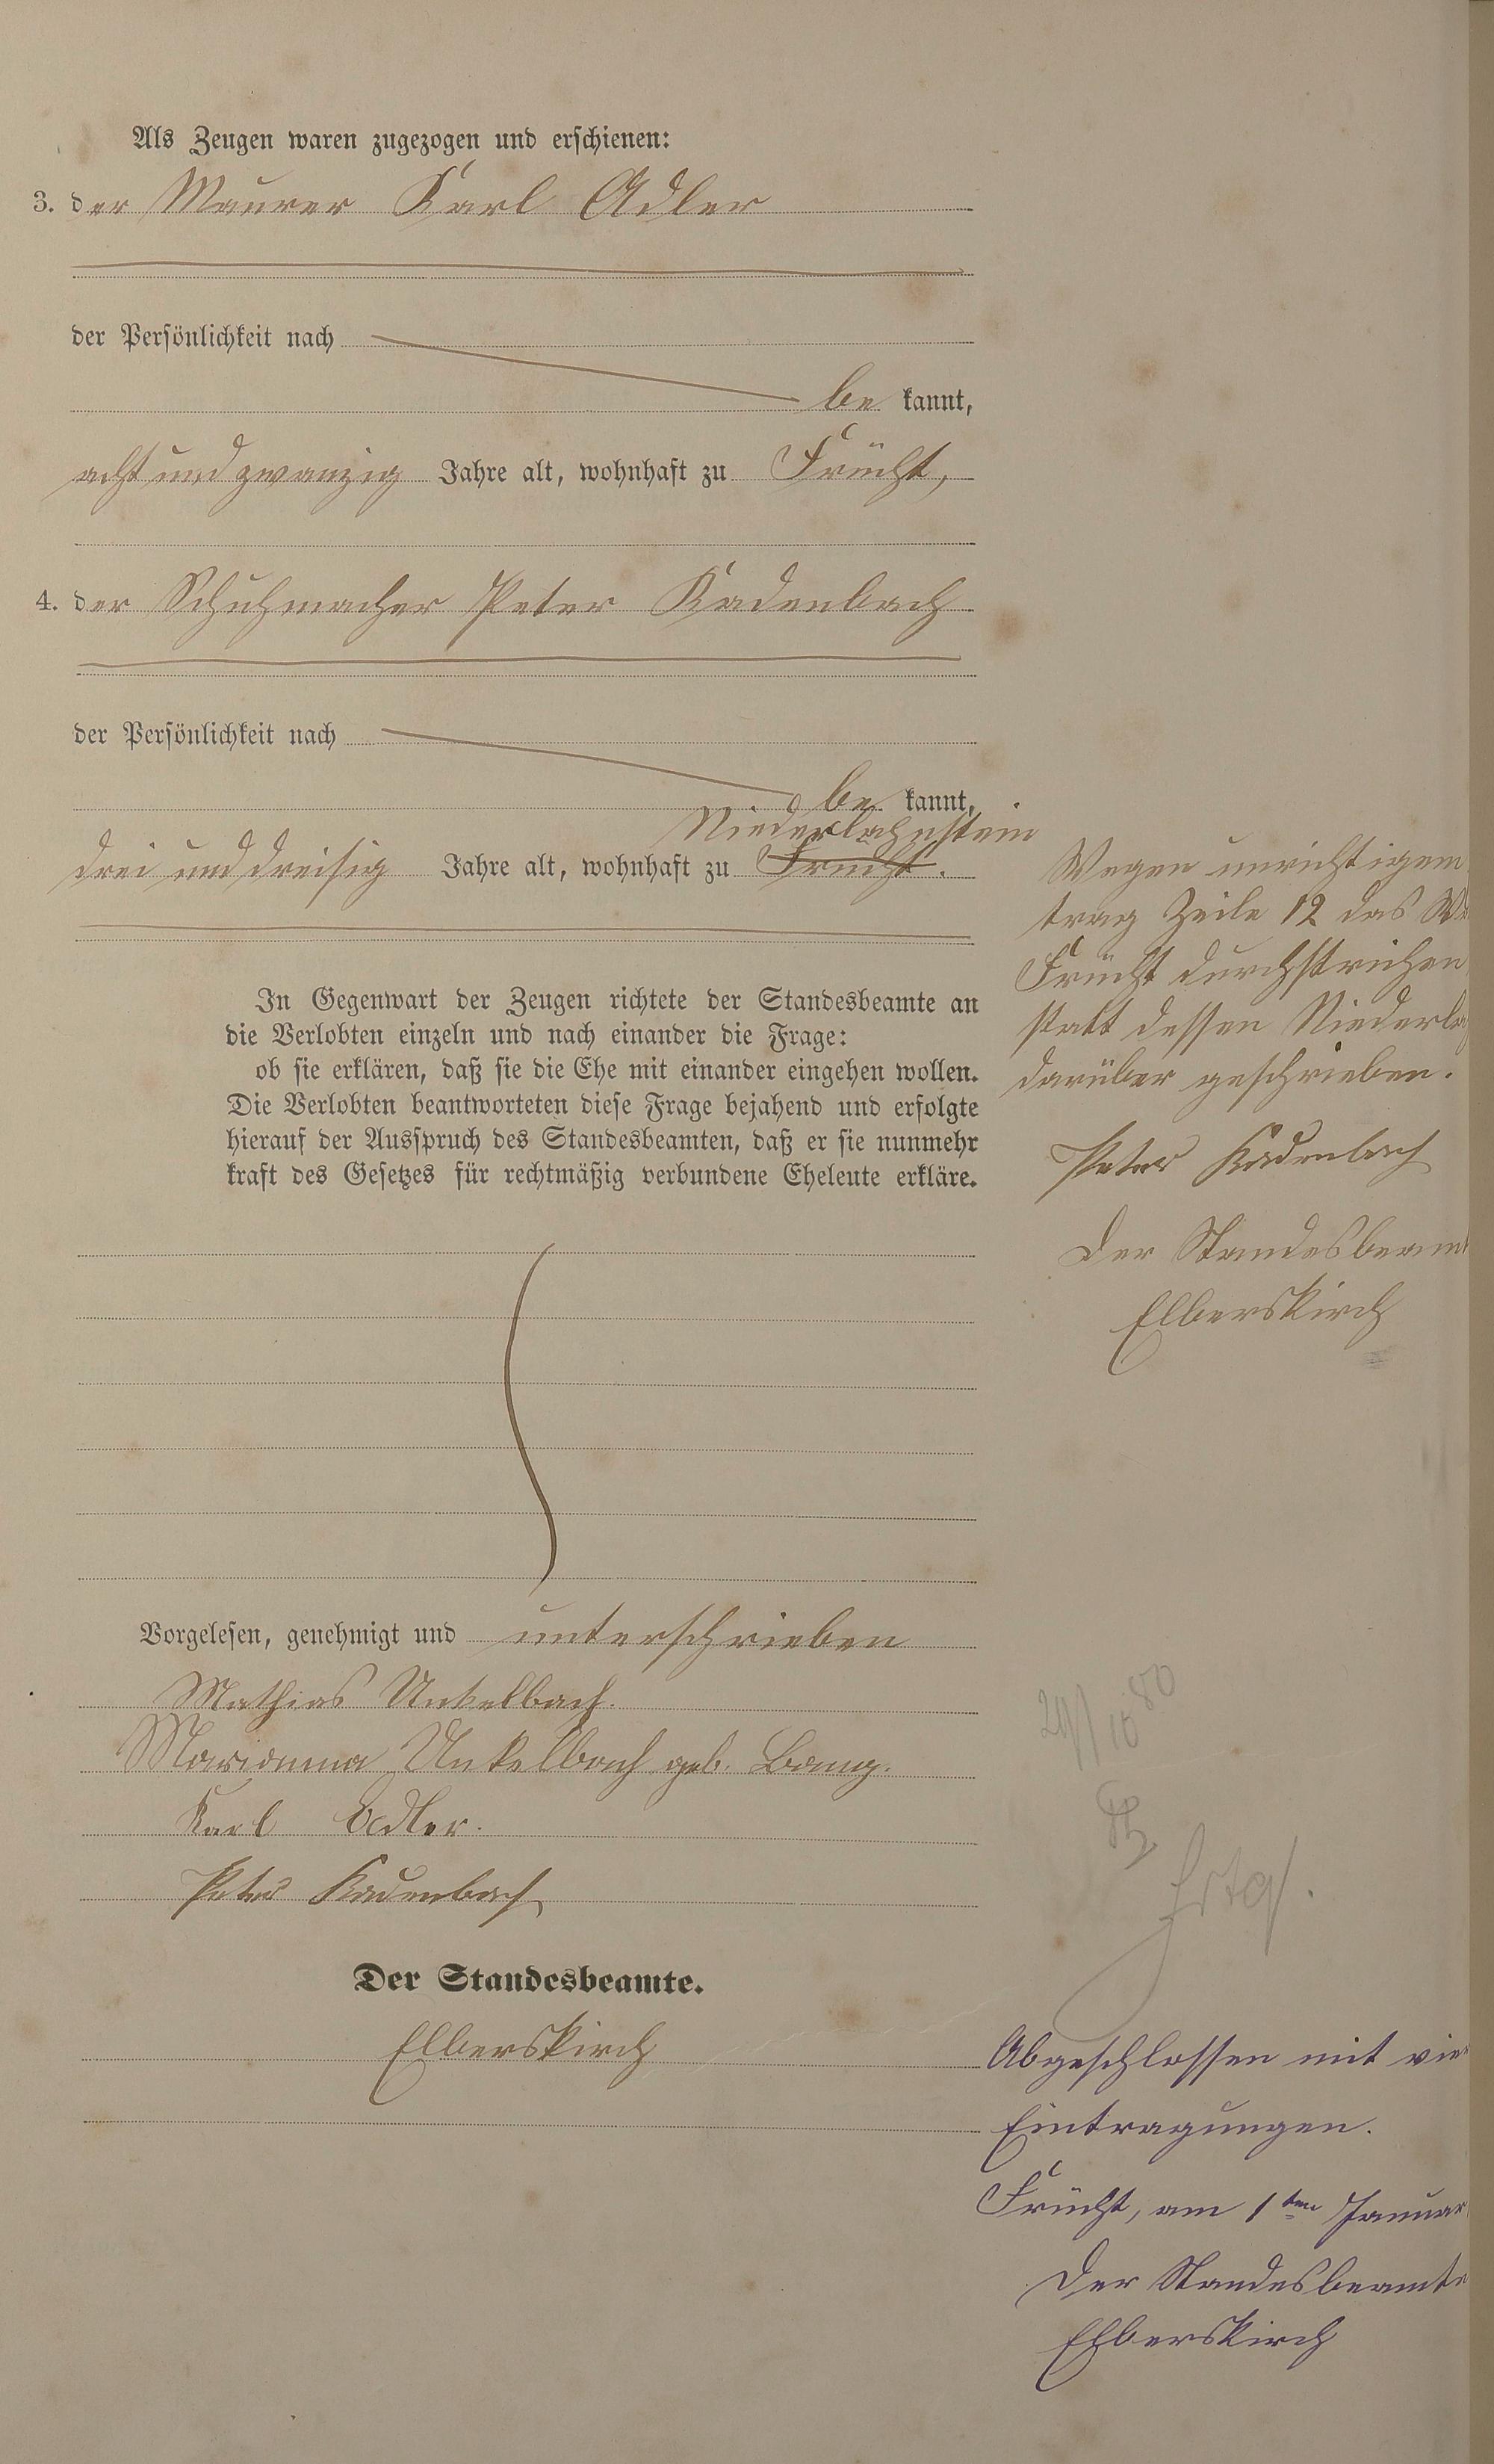 Als Zeugen waren zugezogen und erschienen:
3. der Maurer Karl Adler
der Persönlichkeit nach
be kannt,
acht und zwanzig Jahre alt, wohnhaft zu Frücht,
4. der Schuhmacher Peter Kadenbach
der Persönlichkeit nach
be kannt,
Niederlahnstein
drei und dreisig Jahre alt, wohnhaft zu Frücht.
In Gegenwart der Zeugen richtete der Standesbeamte an
die Verlobten einzeln und nach einander die Frage:
ob sie erklären, daß sie die Ehe mit einander eingehen wollen.
Die Verlobten beantworteten diese Frage bejahend und erfolgte
hierauf der Ausspruch des Standesbeamten, daß er sie nunmehr
kraft des Gesetzes für rechtmäßig verbundene Eheleute erkläre.
Vorgelesen, genehmigt und unterschrieben
Mathias Unkelbach.
Marianna Unkelbach geb. Bang.
Karl Adler.
Peter Kadenbach
Der Standesbeamte.
Elberskirch
Wegen unrichtigem
trag Zeile 12 das W
Frücht durchstrichen
statt dessen Niederla
darüber geschrieben.
Peter Kadenbach
Der Standesbeam
Elberskirch
Abgeschlossen mit vier
Eintragungen.
Frücht, am 1ten Januar
Der Standesbeamte
Elberskirch